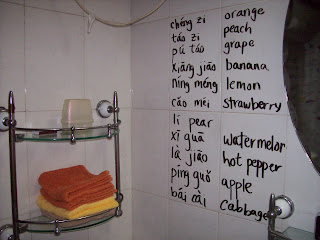 chéng zi orange
táo zi peach
pú táo grape
xiāng jiāo banana
níng méng lemon
cǎo méi strawberry
lí pear
xī guā watermelon
là jiāo hot pepper
píng guǒ apple
bái cài cabbage